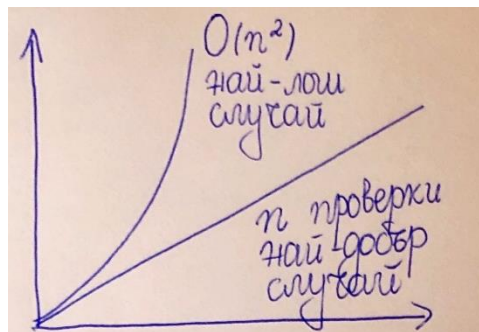 O(n²)
най-лош
случай
n проверки
най-добър
случай